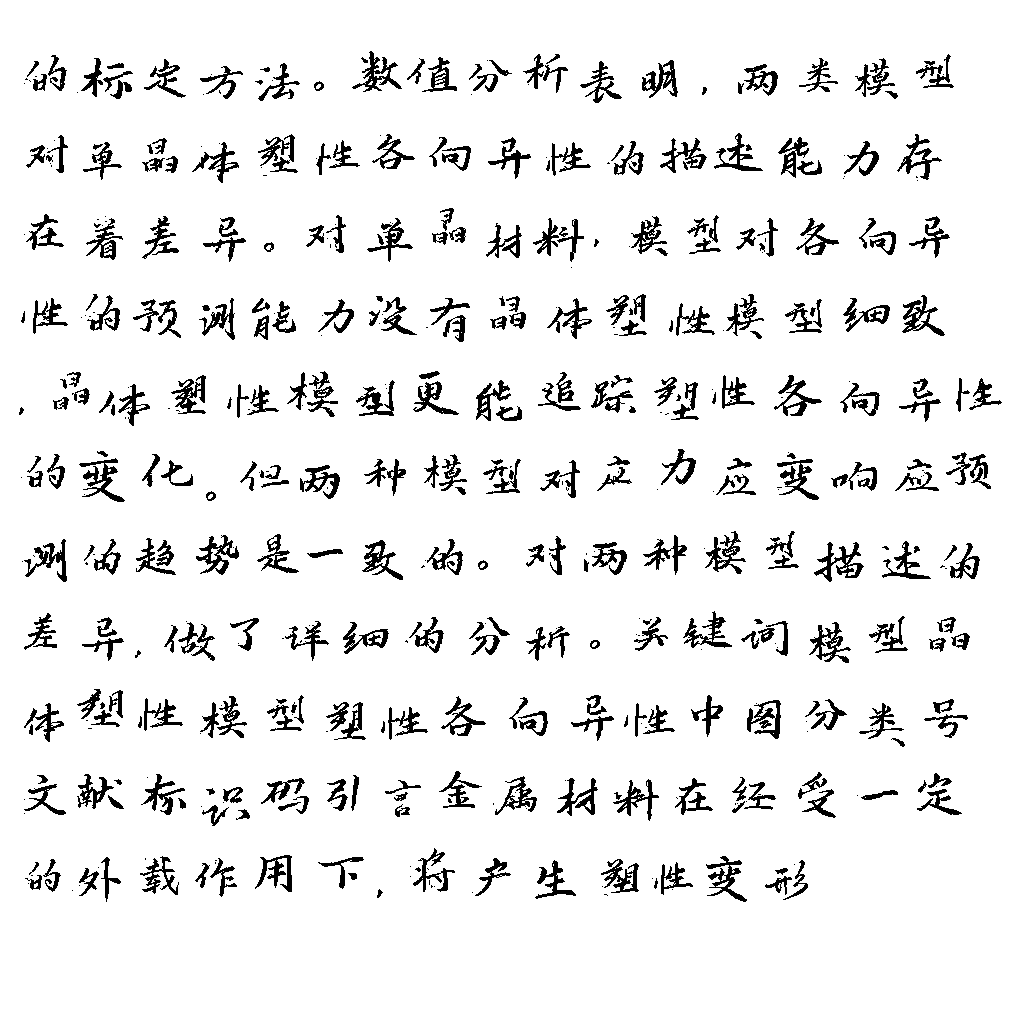 的标定方法。数值分析表明,两类模型
对单晶体塑性各向异性的描述能力存
在着差异。对单晶材料,模型对各向异
性的预测能力没有晶体塑性模型细致
,晶体塑性模型更能追踪塑性各向异性
的变化。但两种模型对应力应变响应预
测的趋势是一致的。对两种模型描述的
差异,做了详细的分析。关键词模型晶
体塑性模型塑性各向异性中图分类号
文献标识码引言金属材料在经受一定
的外载作用下,将产生塑性变形